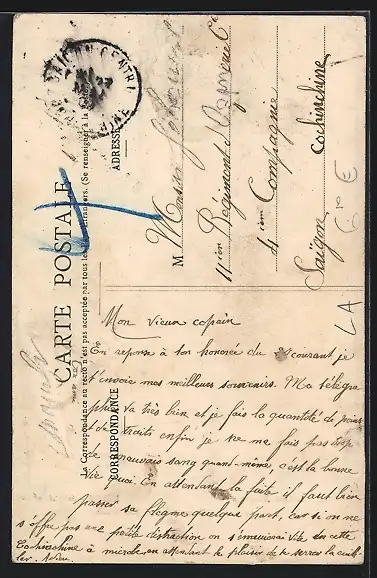 CARTE POSTALE
La Correspondance au recto n'est pas acceptée par tous les pays étrangers. (Se renseigner à la Poste)
CORRESPONDANCE
ADRESSE
SAIGON CENTRAL
M Masson
11ième Régiment d'
4ième Compagnie
Saïgon Cochinchine
LA
Mon vieux copain
En reponse à ton honorée du courant je
t'envoie mes meilleurs souvenirs. Ma télégra
phie va très bien et je fais la quantité de points
de traits enfin je ne me fais pas trop
de mauvais sang quand-même, c'est la bonne
vie quoi. En attendant la fuite il faut bien
passer sa flegme quelque part, car si on ne
s'offre pas une petite distraction on s'ennuierai vite en cette
Cochinchine à en attendant le plaisir de te serrer la